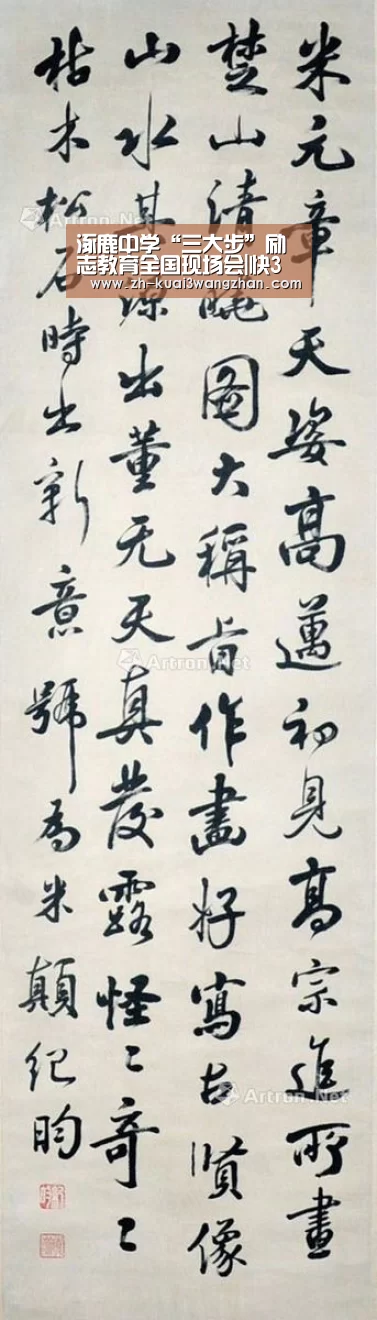 米元章天姿高邁初見高宗進所畫
楚山清曉圖大稱旨作畫好寫古賢像
山水其源出董无天真發露怪〻奇〻
枯木松石時出新意號為米顛紀昀
涿鹿中学“三大步”励
志教育全国现场会|快3
www.zh-kuai3wangzhan.com
Artron.Net
Artron.Net
Artron.Net